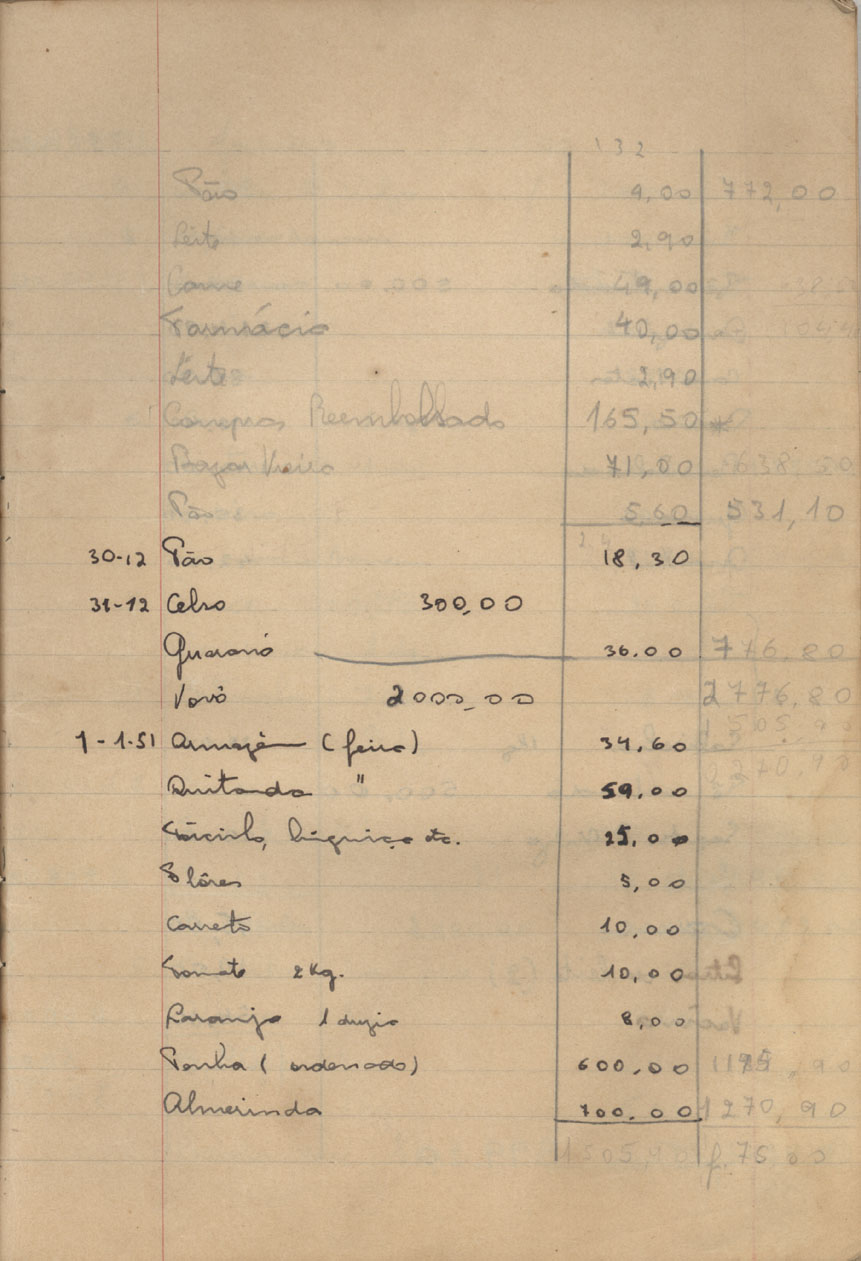 132
Pão 9,00 772,00
Leite 2,90
Carne 49,00
Farmácia 40,00
Leite 2,90
Compras Reembolsado 165,50 *
Bazar Vieira 71,00 638,50
Pão 5,60 531,10
30-12 Pão 18,30
31-12 Celso 300,00
Guaraná 36.00 776.80
Vovó 2000,00 2776.80
1-1-51 Armazém (feira) 34,60
Quitanda " 59.00
Toicinho, linguiça etc. 25,00
Flôres 5,00
Carreto 10,00
Tomate 2 Kg. 10,00
Laranja 1 duzia 8,00
Tonha (ordenado) 600,00
Almerinda 700.00 1270,90
1505,90 f. 75,00